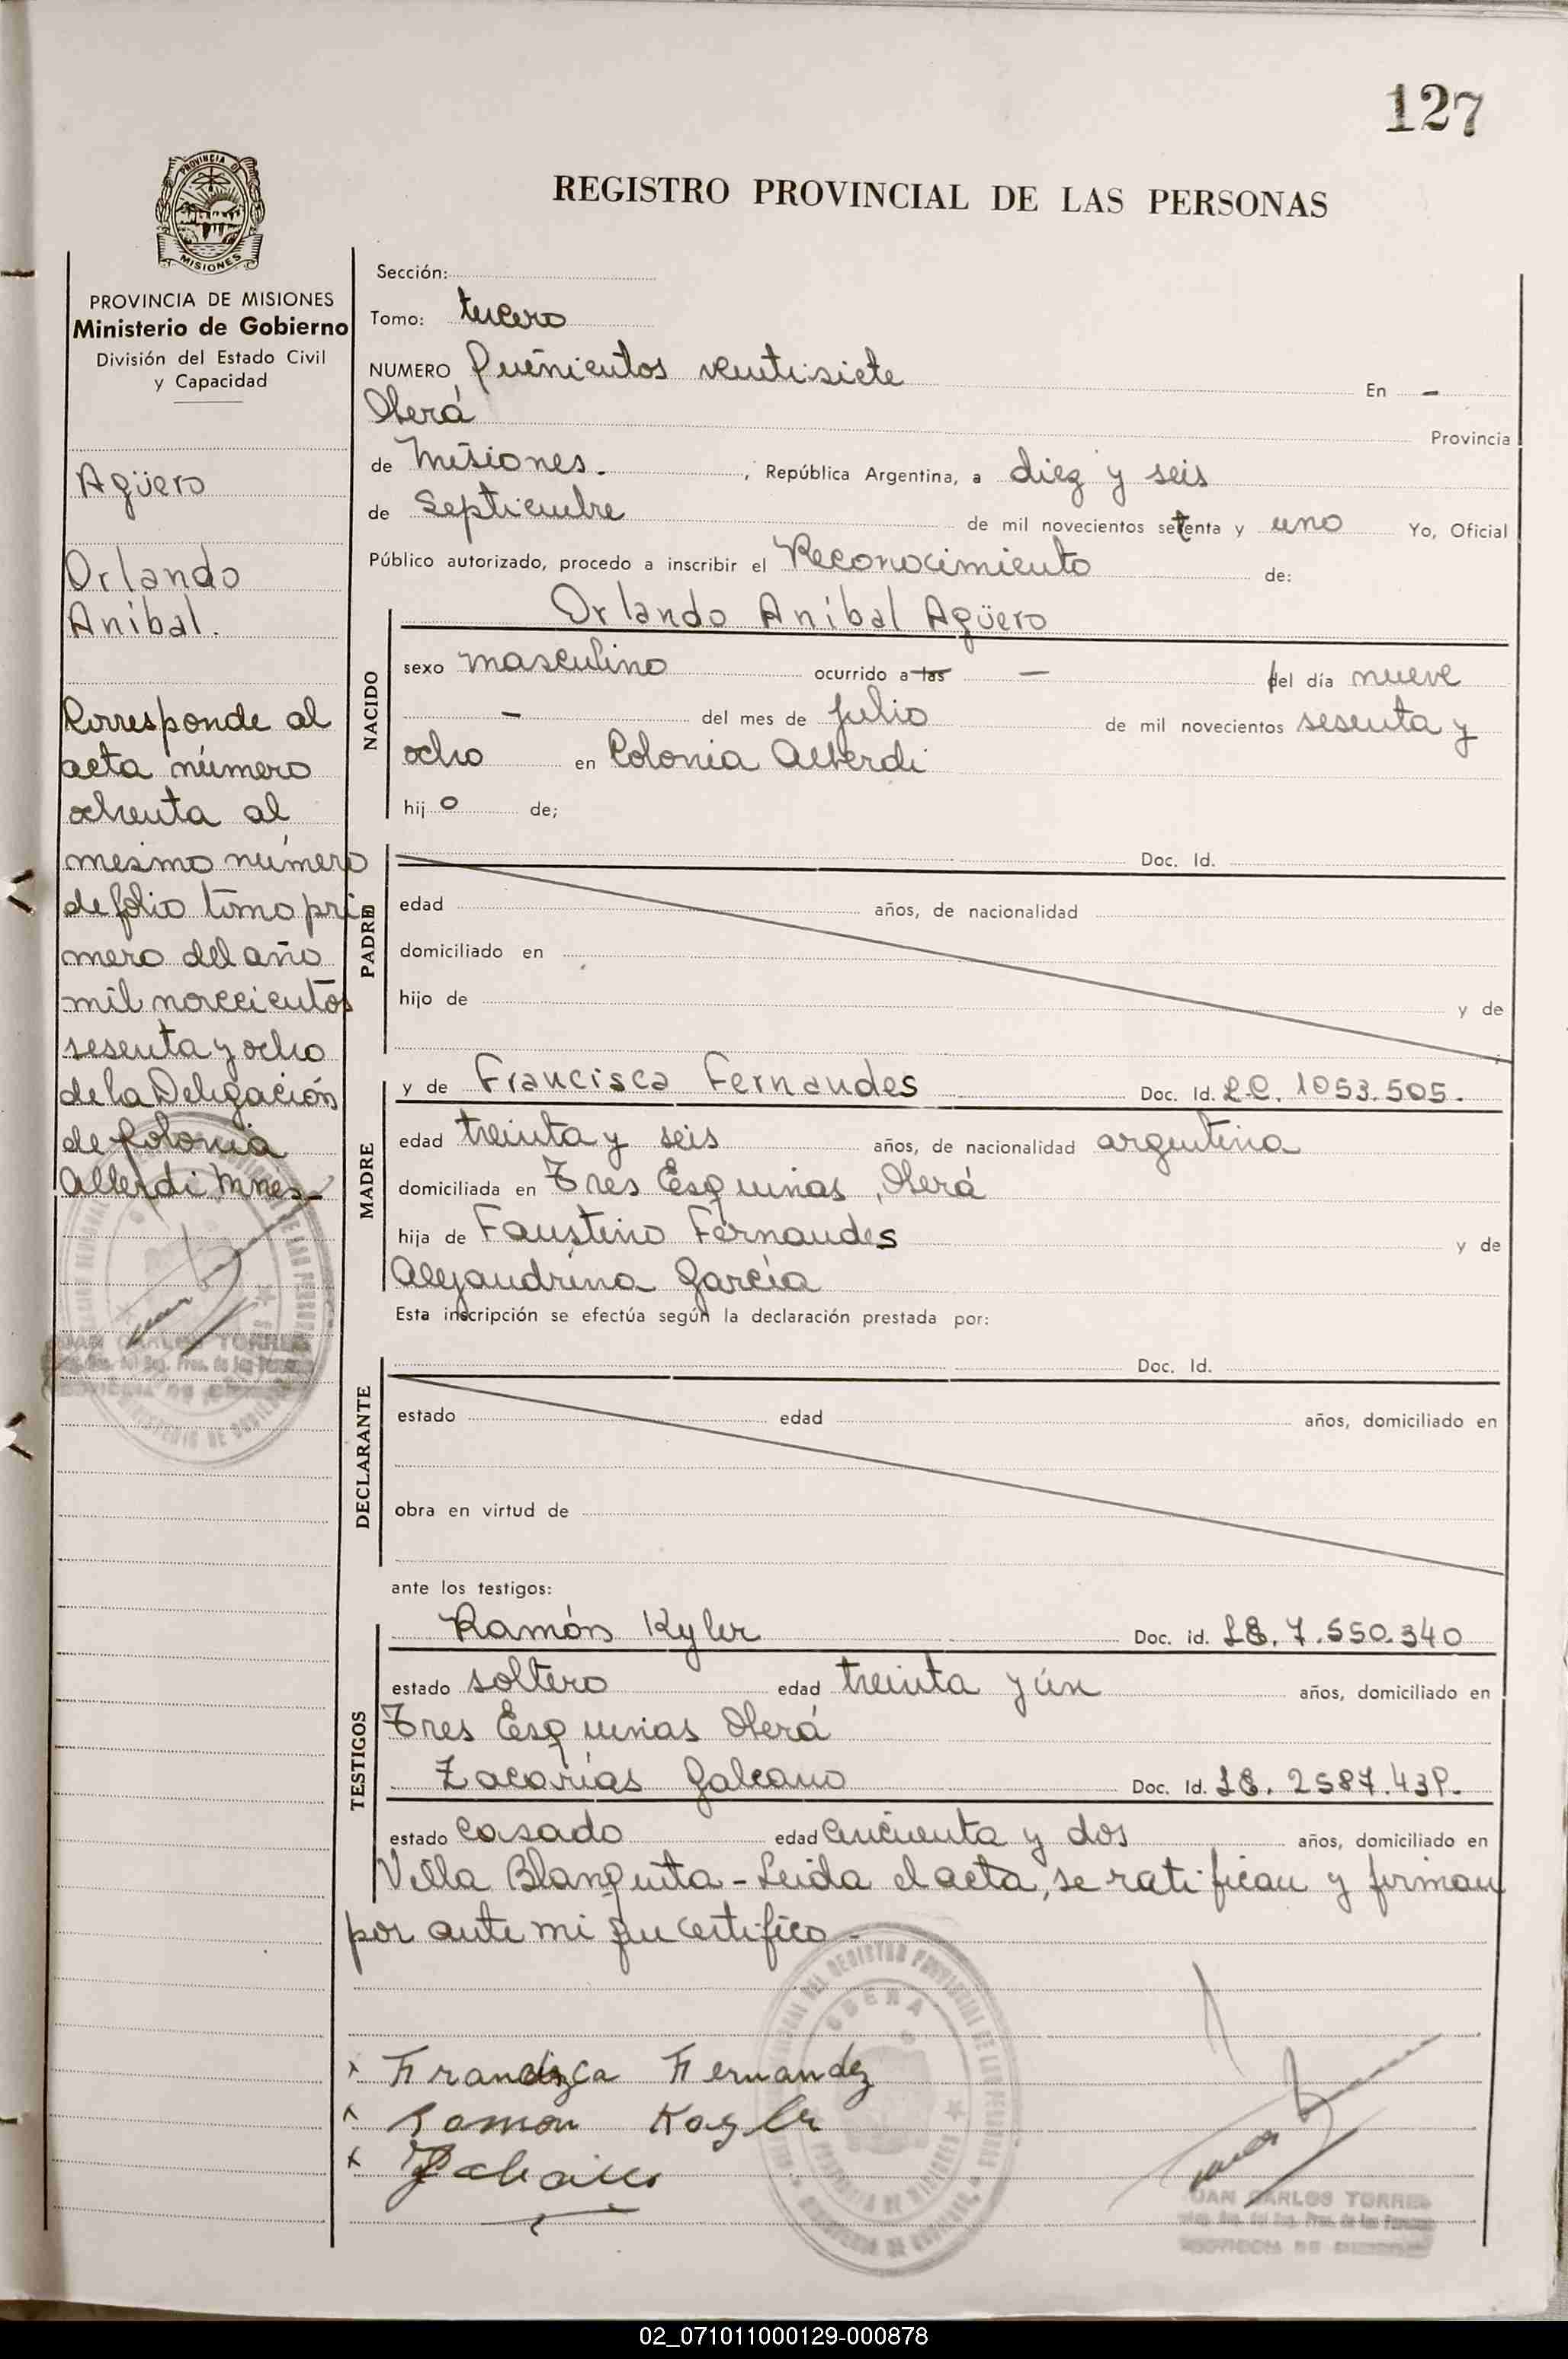 127
PROVINCIA DE
MISIONES
REGISTRO PROVINCIAL DE LAS PERSONAS
PROVINCIA DE MISIONES
Ministerio de Gobierno
División del Estado Civil
y Capacidad
Agüero
Orlando
Aníbal.
Corresponde al
acta número
ochenta al
mismo número
de folio tomo pri
mero del año
mil novecientos
sesenta y ocho
de la Delegación
de Colonia
Alberdi Mnes-
JUAN CARLOS TORRES
Sección:
Tomo: tercero
NUMERO Quinientos veintisiete En -
Oberá Provincia
de Misiones. , República Argentina, a diez y seis
de Septiembre de mil novecientos setenta y uno Yo, Oficial
Público autorizado, procedo a inscribir el Reconocimiento de:
NACIDO
Orlando Aníbal Agüero
sexo masculino ocurrido a las - del día nueve
- del mes de Julio de mil novecientos sesenta y
ocho en Colonia Alberdi
hijo de;
PADRE
Doc. Id.
edad años, de nacionalidad
domiciliado en
hijo de y de
MADRE
y de Francisca Fernandes Doc. Id. L.C. 1053.505.
edad treinta y seis años, de nacionalidad argentina
domiciliada en Tres Esquinas, Oberá
hija de Faustino Fernandes y de
Alejandrina García
Esta inscripción se efectúa según la declaración prestada por:
DECLARANTE
Doc. Id.
estado edad años, domiciliado en
obra en virtud de
ante los testigos:
TESTIGOS
Ramón Kyler Doc. id. LE. 7.550.340
estado soltero edad treinta y ún años, domiciliado en
Tres Esquinas Oberá
Zacarías Galeano Doc. Id. LE. 2587.43P.
estado casado edad cincuenta y dos años, domiciliado en
Villa Blanquita - Leida el acta, se ratifican y firman
por ante mi que certifico -
x Francisca Fernandez
x Ramon
x
OBERA
JUAN CARLOS TORRES
02_071011000129-000878